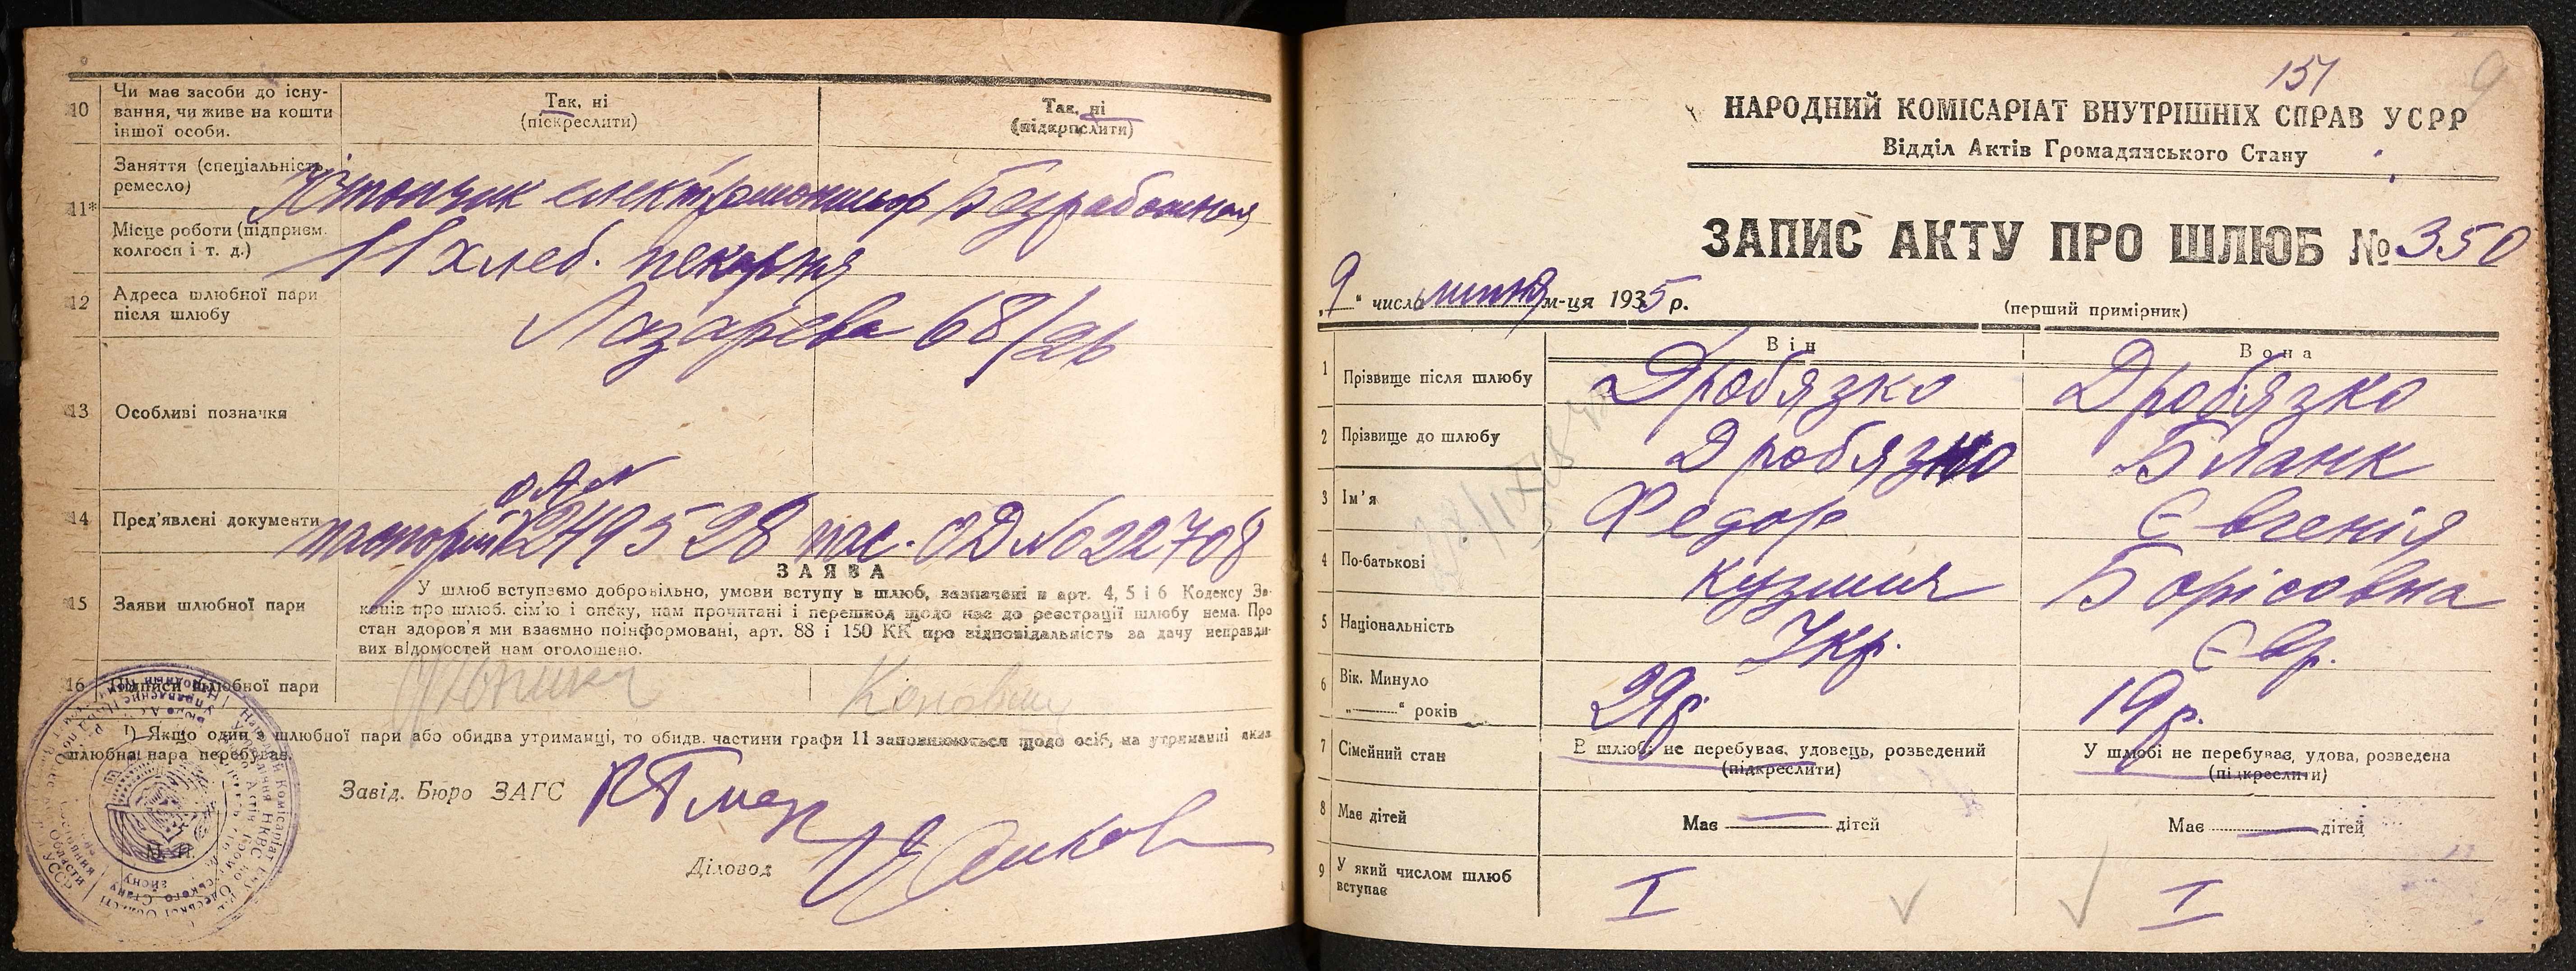 10 Чи має засоби до існу-
вання, чи живе на кошти
іншої особи.
Так, ні
(піскреслити)
Так, ні
(підкреслити)
11* Заняття (спеціальність
ремесло)
електромонтьор
Безработная
Місце роботи (підприєм.
колгосп і т. д.)
11 хлеб. пекарня
12 Адреса шлюбної пари
після шлюбу
Лазарева 68/26
13 Особливі позначки
14 Пред'явлені документи
249528 пас. ОД №022708
ЗАЯВА
15 Заяви шлюбної пари
У шлюб вступаємо добровільно, умови вступу в шлюб, зазначені в арт. 4, 5 і 6 Кодексу За-
конів про шлюб. сім'ю і опеку, нам прочитані і перешкод щодо нас до реєстрації шлюбу нема. Про
стан здоров'я ми взаємно поінформовані, арт. 88 і 150 КК про відповідальність за дачу неправди-
вих відомостей нам оголошено.
16 Підписи шлюбної пари
¹) Якщо один з шлюбної пари або обидва утриманці, то обидв. частини графи 11 заповнюються щодо осіб, на утриманні яких
шлюбна пара перебуває.
Завід. Бюро ЗАГС
Діловод
М. П.
151
9
НАРОДНИЙ КОМІСАРІАТ ВНУТРІШНІХ СПРАВ УСРР
Відділ Актів Громадянського Стану
ЗАПИС АКТУ ПРО ШЛЮБ № 350
„9" числа липня м-ця 1935 р.
(перший примірник)
Він
Вона
1 Прізвище після шлюбу
Дробязко
Дробязко
2 Прізвище до шлюбу
Дробязко
Бланк
3 Ім'я
Федор
Євгенія
4 По-батькові
Кузмич
Борісовна
5 Національність
Укр.
Євр.
6 Вік. Минуло
„——" років
29 р.
19 р.
7 Сімейний стан
В шлюбі не перебуває, удовець, розведений
(підкреслити)
У шлюбі не перебуває, удова, розведена
(підкреслити)
8 Має дітей
Має — дітей
Має — дітей
9 У який числом шлюб
вступає
I
I